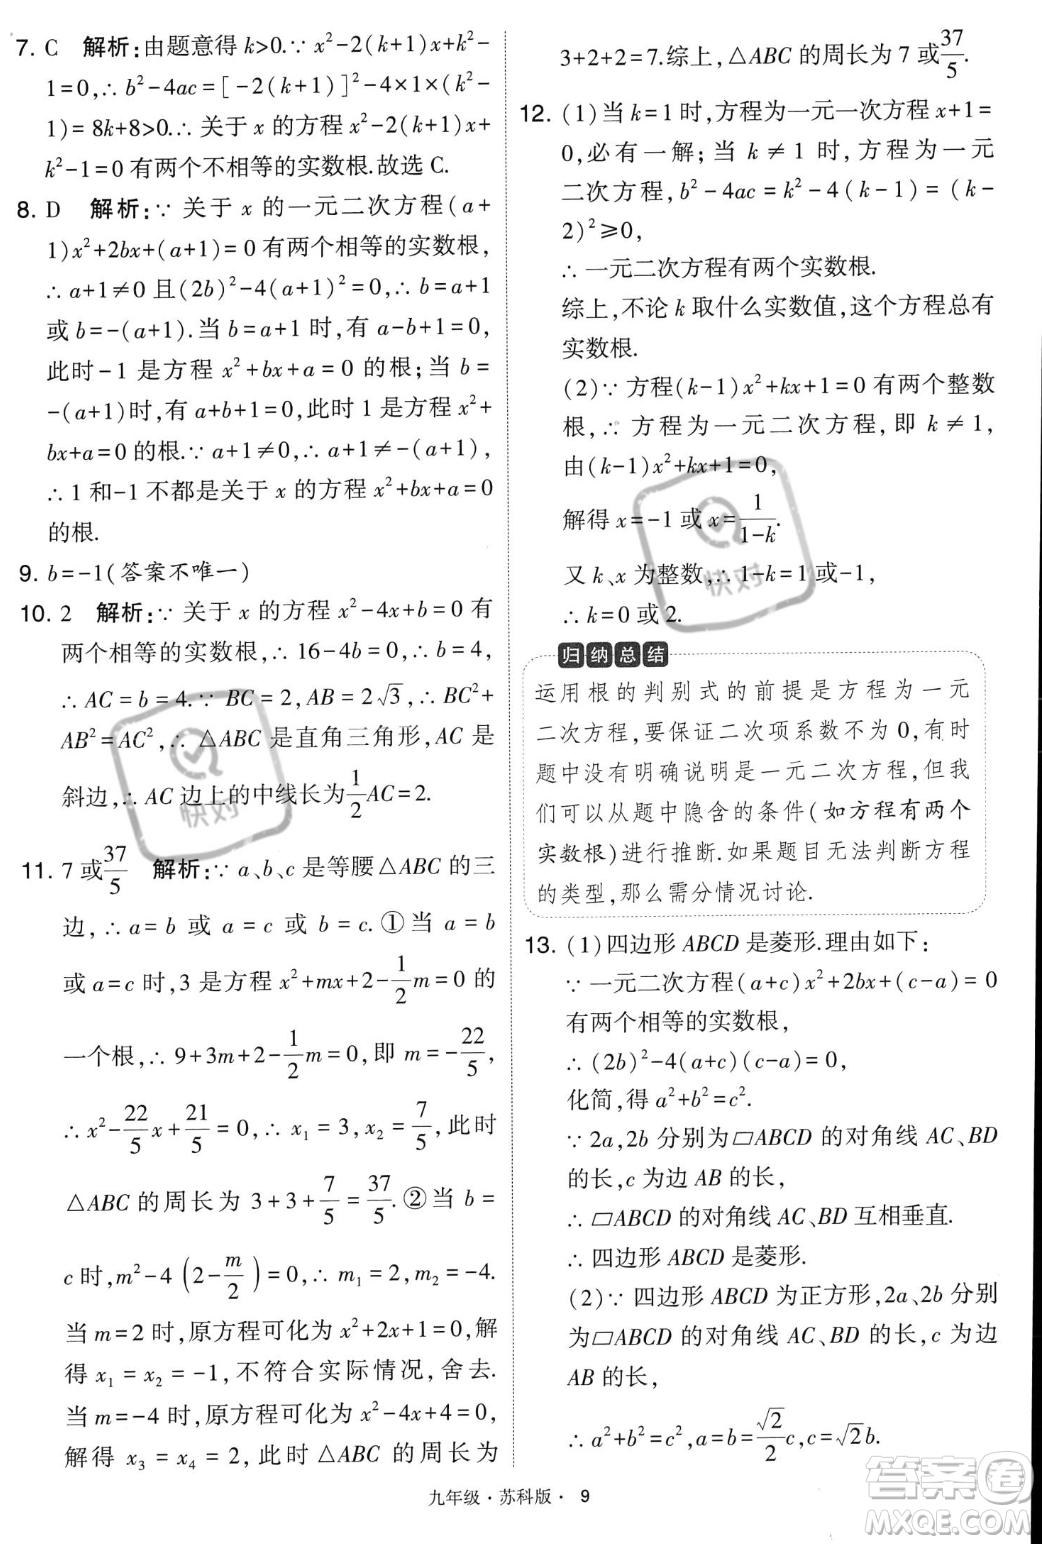 7. C 解析:由题意得 k>0.∵ x²-2(k+1)x+k²-
1=0,∴ b²-4ac=[-2(k+1)]²-4×1×(k²-
1)=8k+8>0.∴ 关于 x 的方程 x²-2(k+1)x+
k²-1=0 有两个不相等的实数根.故选 C.
8. D 解析:∵ 关于 x 的一元二次方程(a+
1)x²+2bx+(a+1)=0 有两个相等的实数根,
∴ a+1≠0 且(2b)²-4(a+1)²=0.∴ b=a+1
或 b=-(a+1).当 b=a+1 时,有 a-b+1=0,
此时-1 是方程 x²+bx+a=0 的根;当 b=
-(a+1)时,有 a+b+1=0,此时 1 是方程 x²+
bx+a=0 的根.∵ a+1≠0,∴ a+1≠-(a+1),
∴ 1 和-1 不都是关于 x 的方程 x²+bx+a=0
的根.
9. b=-1(答案不唯一)
10. 2 解析:∵ 关于 x 的方程 x²-4x+b=0 有
两个相等的实数根,∴ 16-4b=0,∴ b=4,
∴ AC=b=4.∵ BC=2,AB=2√3,∴ BC²+
AB²=AC²,∴ △ABC 是直角三角形,AC 是
斜边,∴ AC 边上的中线长为1/2AC=2.
11. 7 或37/5 解析:∵ a、b、c 是等腰△ABC 的三
边,∴ a=b 或 a=c 或 b=c.①当 a=b
或 a=c 时,3 是方程 x²+mx+2-1/2m=0 的
一个根,∴ 9+3m+2-1/2m=0,即 m=-22/5,
∴ x²-22/5x+21/5=0,∴ x₁=3,x₂=7/5,此时
△ABC 的周长为 3+3+7/5=37/5.②当 b=
c 时,m²-4(2-m/2)=0,∴ m₁=2,m₂=-4.
当 m=2 时,原方程可化为 x²+2x+1=0,解
得 x₁=x₂=-1,不符合实际情况,舍去.
当 m=-4 时,原方程可化为 x²-4x+4=0,
解得 x₃=x₄=2,此时△ABC 的周长为
3+2+2=7.综上,△ABC 的周长为 7 或37/5.
12. (1)当 k=1 时,方程为一元一次方程 x+1=
0,必有一解;当 k≠1 时,方程为一元
二次方程,b²-4ac=k²-4(k-1)=(k-
2)²≥0,
∴ 一元二次方程有两个实数根.
综上,不论 k 取什么实数值,这个方程总有
实数根.
(2)∵ 方程(k-1)x²+kx+1=0 有两个整数
根,∴ 方程为一元二次方程,即 k≠1,
由(k-1)x²+kx+1=0,
解得 x=-1 或 x=1/(1-k).
又 k、x 为整数,∴ 1-k=1 或-1,
∴ k=0 或 2.
归纳总结
运用根的判别式的前提是方程为一元
二次方程,要保证二次项系数不为 0,有时
题中没有明确说明是一元二次方程,但我
们可以从题中隐含的条件(如方程有两个
实数根)进行推断.如果题目无法判断方程
的类型,那么需分情况讨论.
13. (1)四边形 ABCD 是菱形.理由如下:
∵ 一元二次方程(a+c)x²+2bx+(c-a)=0
有两个相等的实数根,
∴ (2b)²-4(a+c)(c-a)=0,
化简,得 a²+b²=c².
∵ 2a,2b 分别为▱ABCD 的对角线 AC、BD
的长,c 为边 AB 的长,
∴ ▱ABCD 的对角线 AC、BD 互相垂直.
∴ 四边形 ABCD 是菱形.
(2)∵ 四边形 ABCD 为正方形,2a、2b 分别
为▱ABCD 的对角线 AC、BD 的长,c 为边
AB 的长,
∴ a²+b²=c²,a=b=√2/2c,c=√2b.
九年级·苏科版· 9
快对
快对
作业精灵